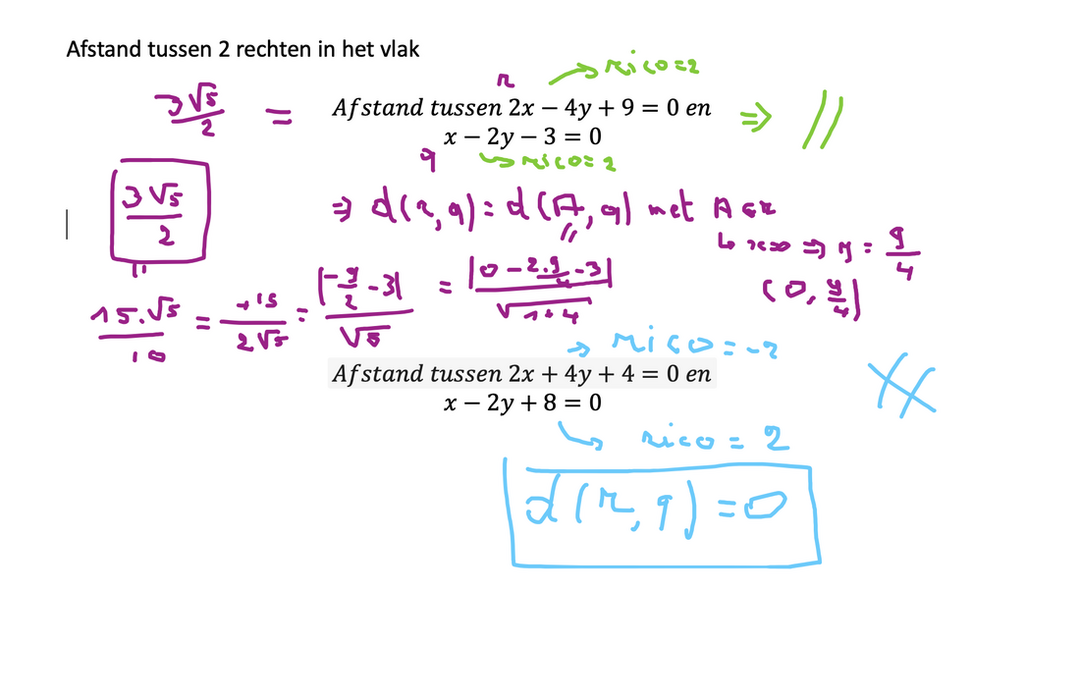 Afstand tussen 2 rechten in het vlak
r → rico=2
3√5/2 = Afstand tussen 2x − 4y + 9 = 0 en ⇒ //
x − 2y − 3 = 0
q ↪ rico=2
3√5/2 ⇒ d(r,q)=d(A,q) met A∈r
↳ x=0 ⇒ y=9/4
(0,9/4)
15.√5/10 = +15/2√5 = |-9/2-3|/√5 = |0-2.9/4-3|/√1+4
→ rico=-2
Afstand tussen 2x + 4y + 4 = 0 en
x − 2y + 8 = 0
↪ rico = 2
d(r,q)=0